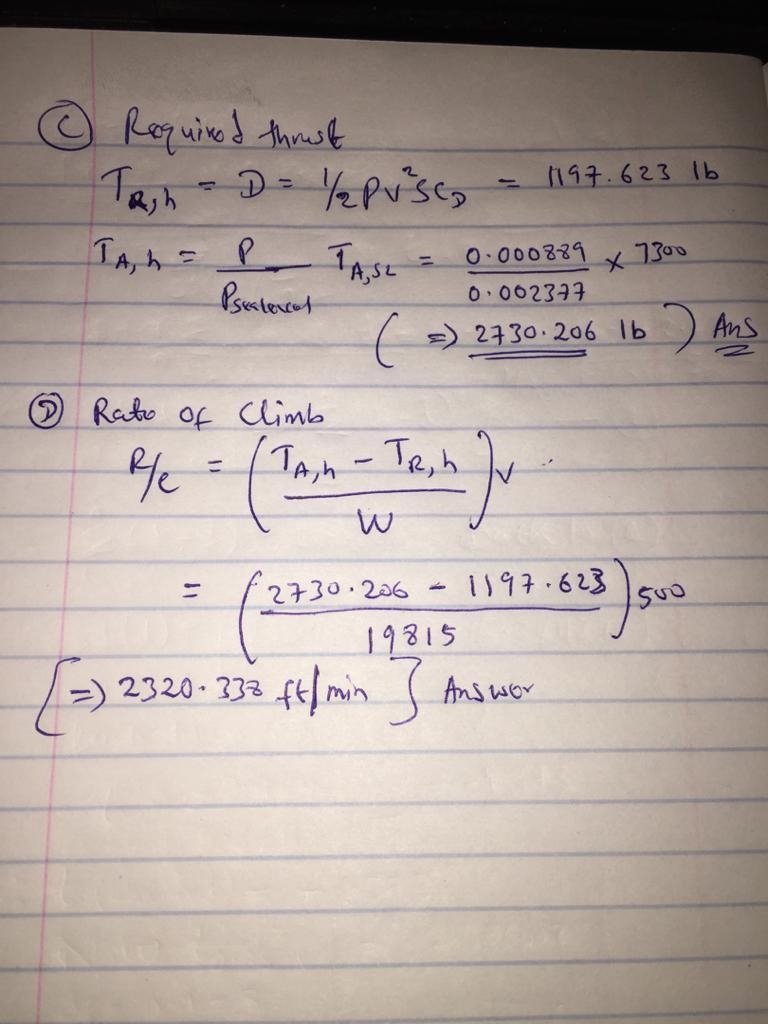 Ⓒ Required thrust
T_R,h = D = 1/2 ρv²SC_D = 1197.623 lb
T_A,h = ρ / ρ_sealevel T_A,SL = 0.000889 / 0.002377 × 7300
( => 2730.206 lb ) Ans
Ⓓ Rate of Climb
R/c = ( T_A,h - T_R,h / W ) v
= ( 2730.206 - 1197.623 / 19815 ) 500
[ => 2320.338 ft/min ] Answer